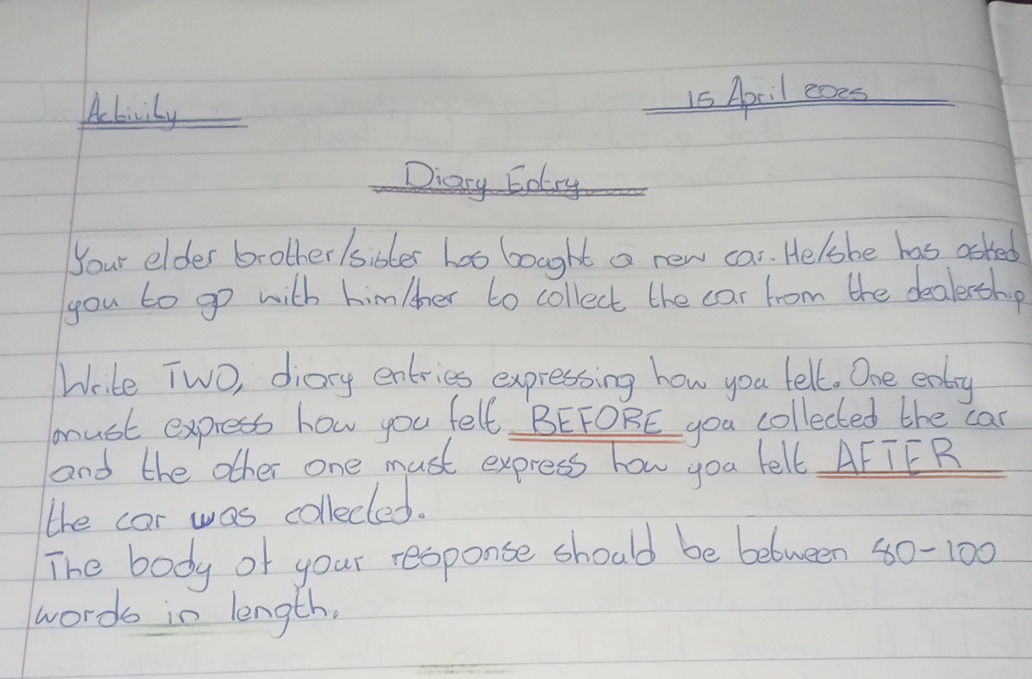 Activity
15 April 2025
Diary Entry
Your elder brother/sister has bought a new car. He/she has asked
you to go with him/her to collect the car from the dealership
Write TWO, diary entries expressing how you felt. One entry
must express how you felt BEFORE you collected the car
and the other one must express how you felt AFTER
the car was collected.
The body of your response should be between 80-100
words in length.